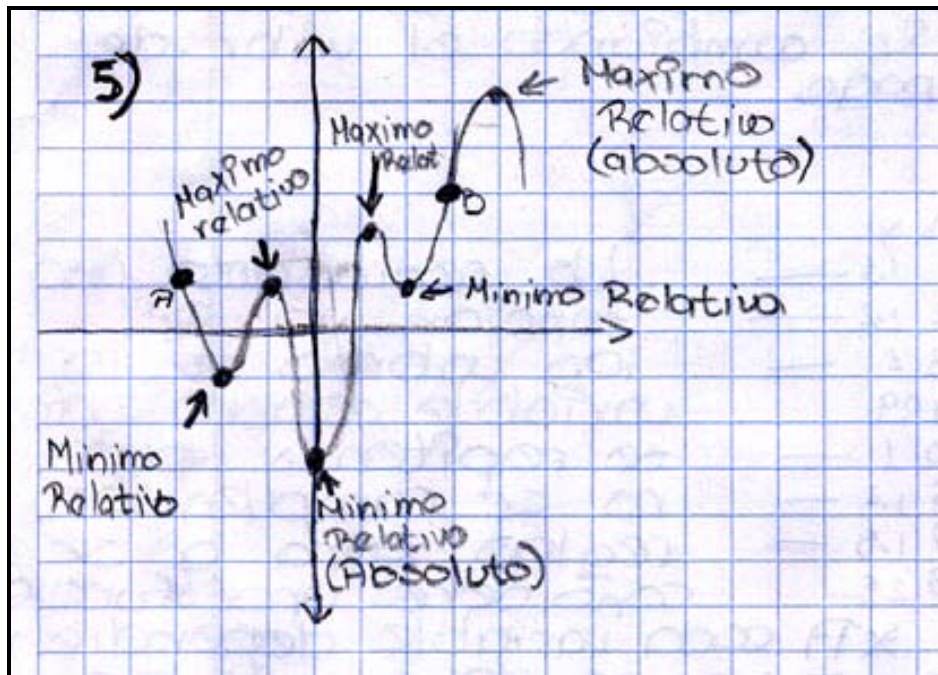 5)
Maximo
Relativo
(absoluto)
Maximo
Relat
Maximo
relativo
A
B
Minimo Relativa
Minimo
Relativo
Minimo
Relativo
(Absoluto)